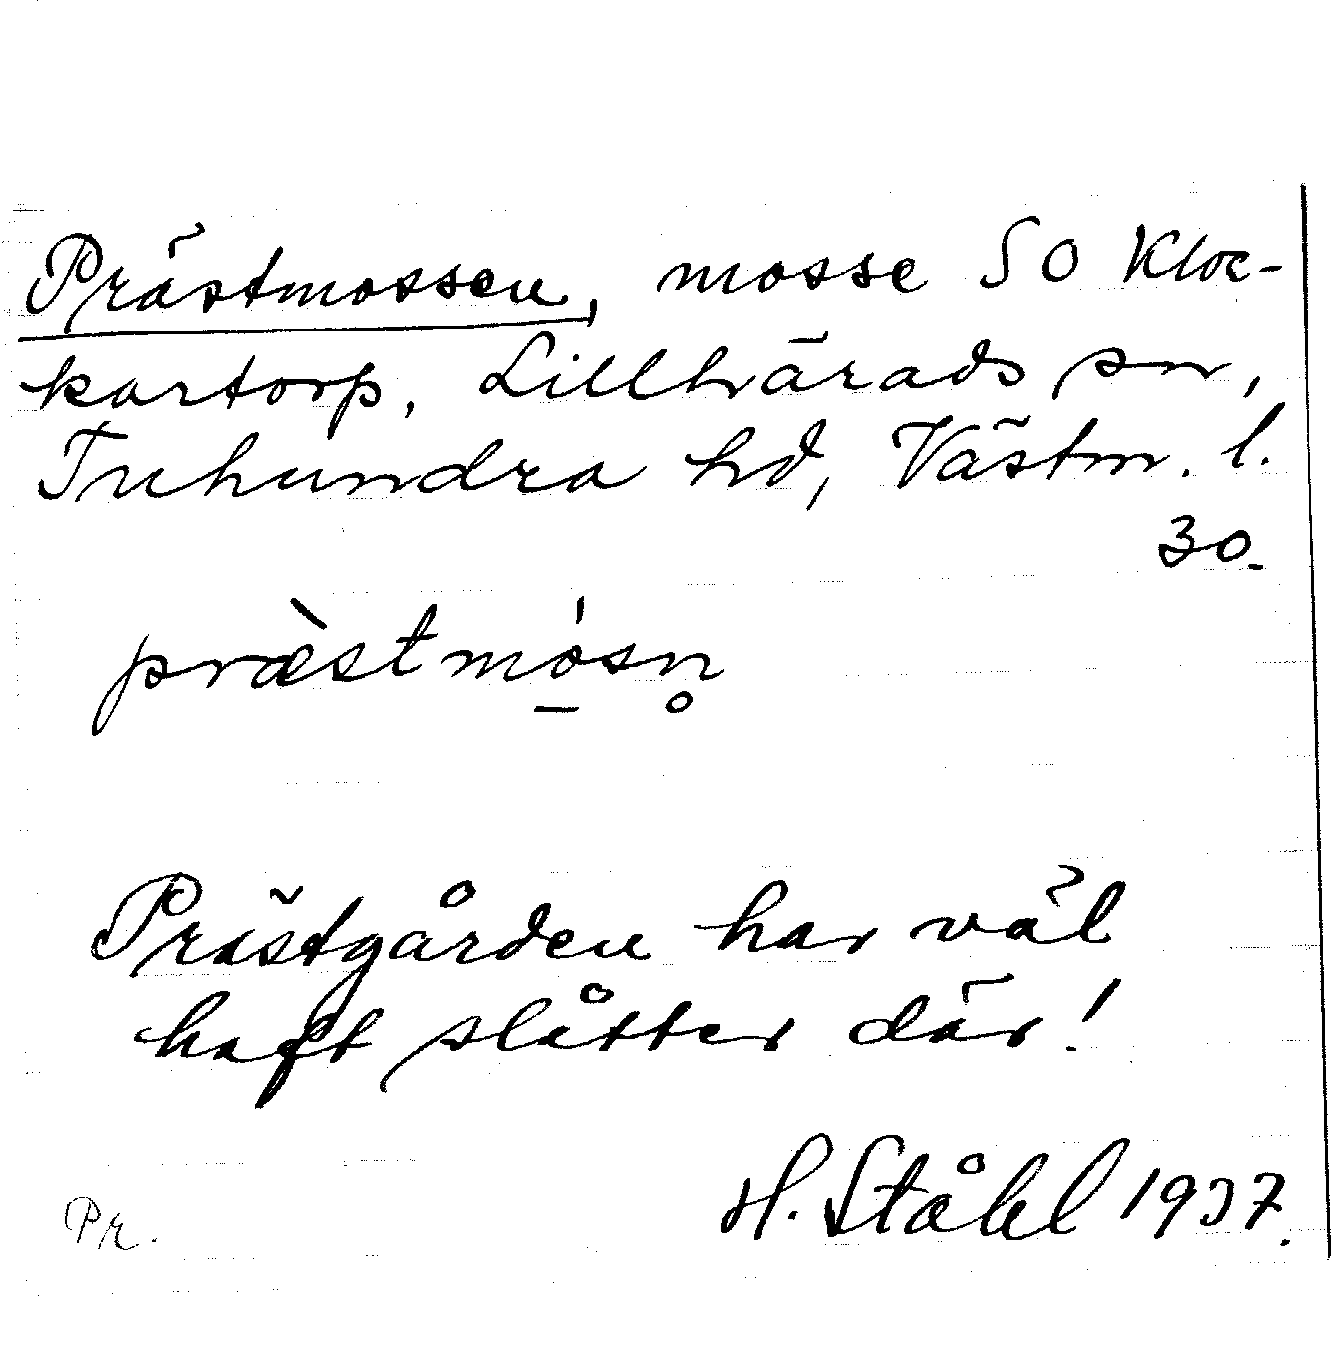 Prästmossen, mosse SO Kloc-
kartorp, Lillhärads sn,
Tuhundra hd, Västm. l.
30.
præ̀stmó̱sn̥
Prästgården har väl
haft slåtter där!
H. Ståhl 1937.
Pr.